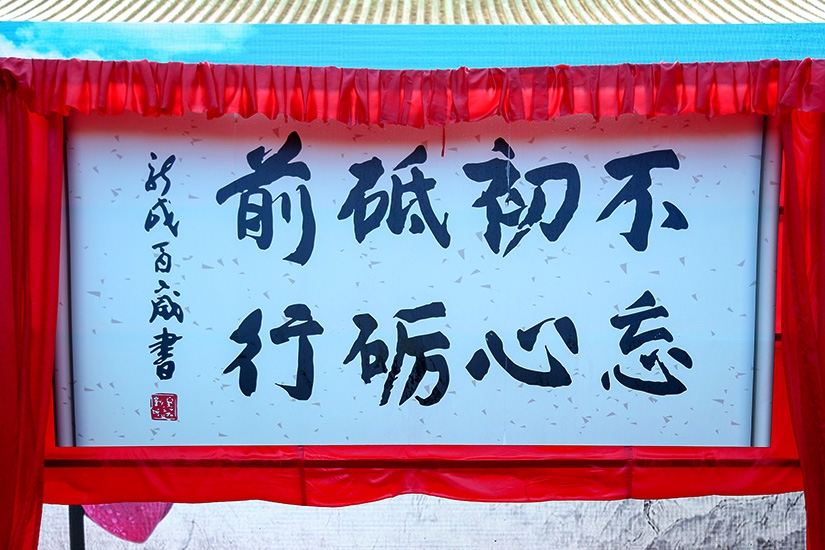 不忘
初心
砥砺
前行
百歲書